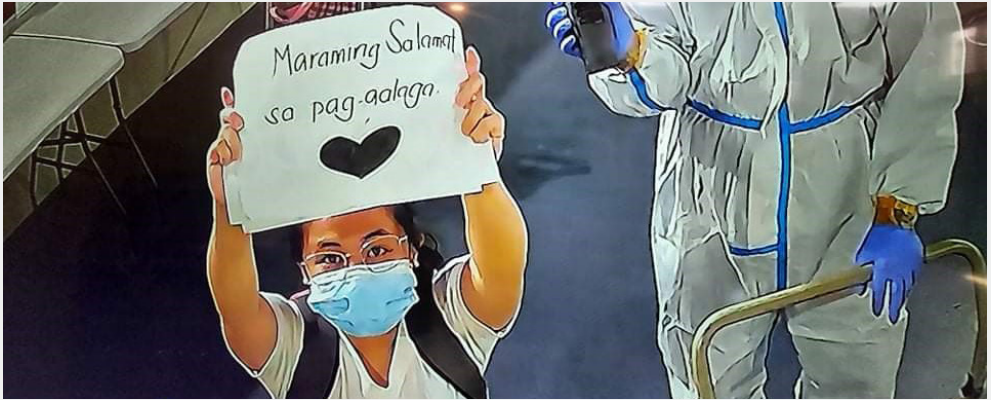 Maraming Salamat
sa pag-aalaga.